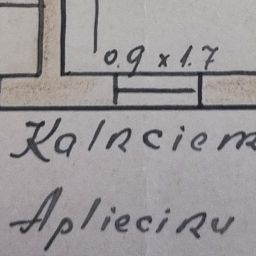 0.9 x 1.7
Kalnciem
Apliecinu